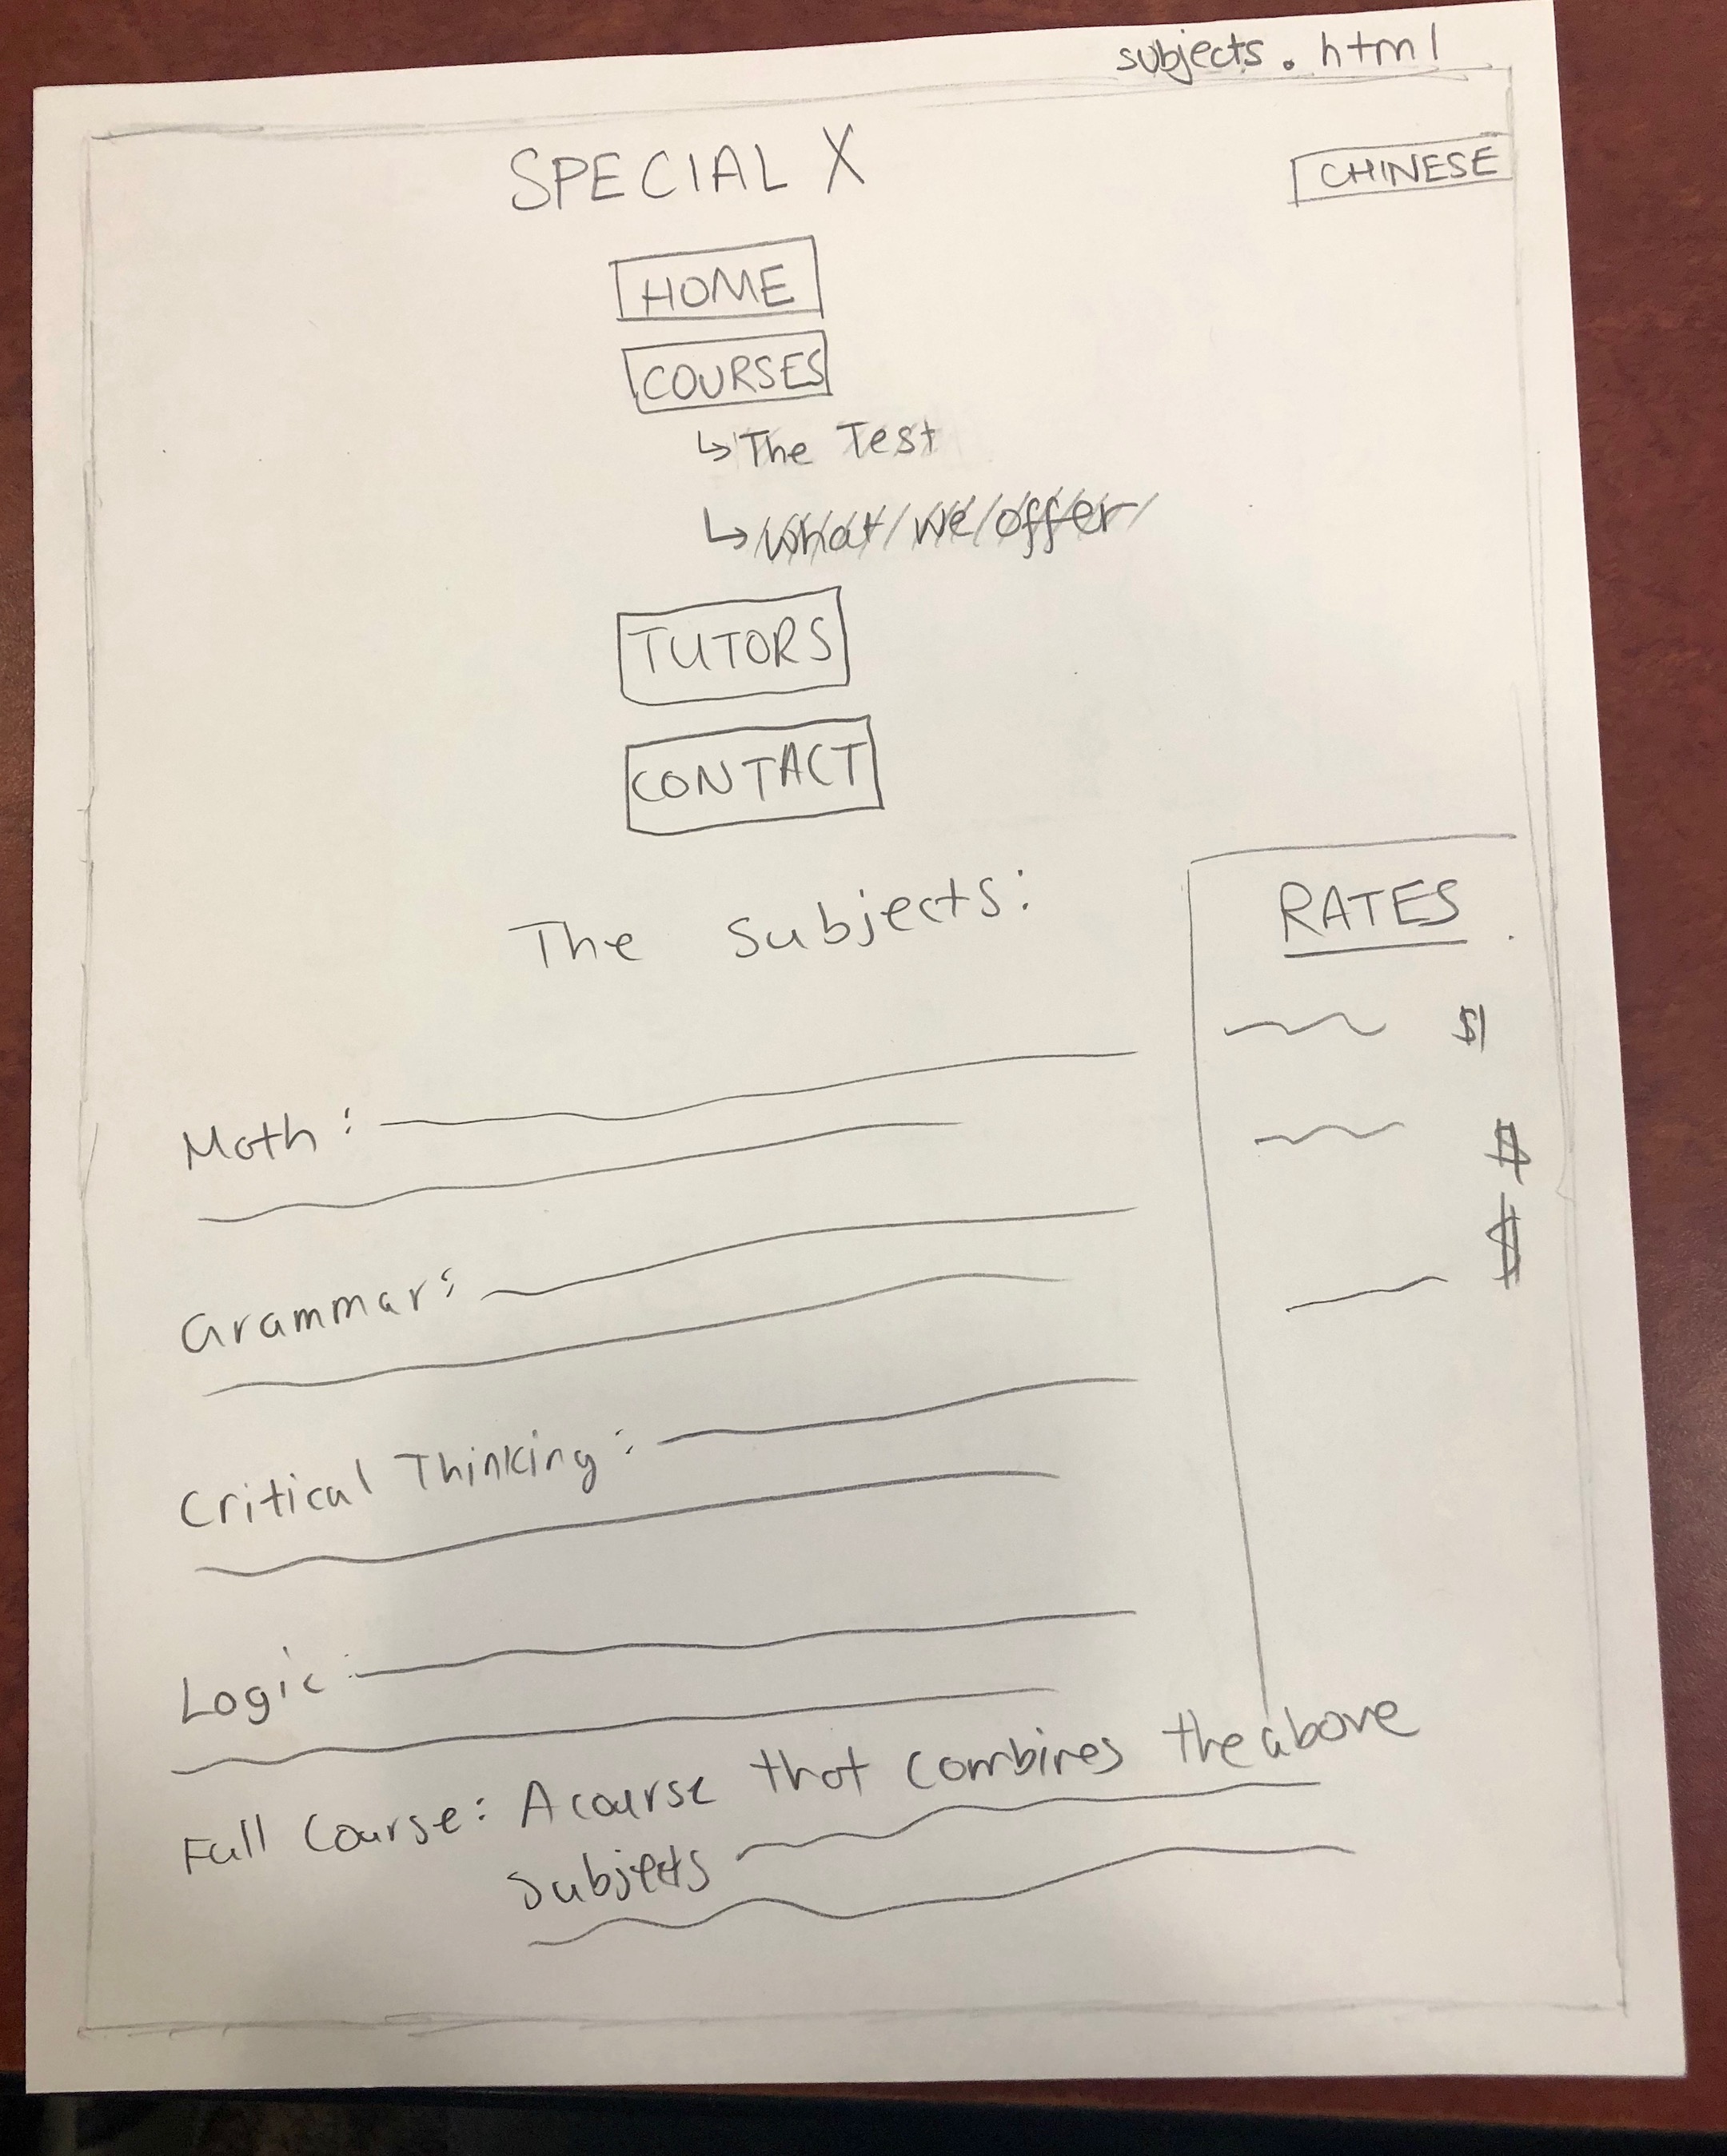 subjects.html
SPECIAL X
CHINESE
HOME
COURSES
↳ The Test
↳ What we offer
TUTORS
CONTACT
The Subjects:
RATES
$
$
$
Math:
Grammar:
Critical Thinking:
Logic:
Full Course: A course that combines the above
Subjects